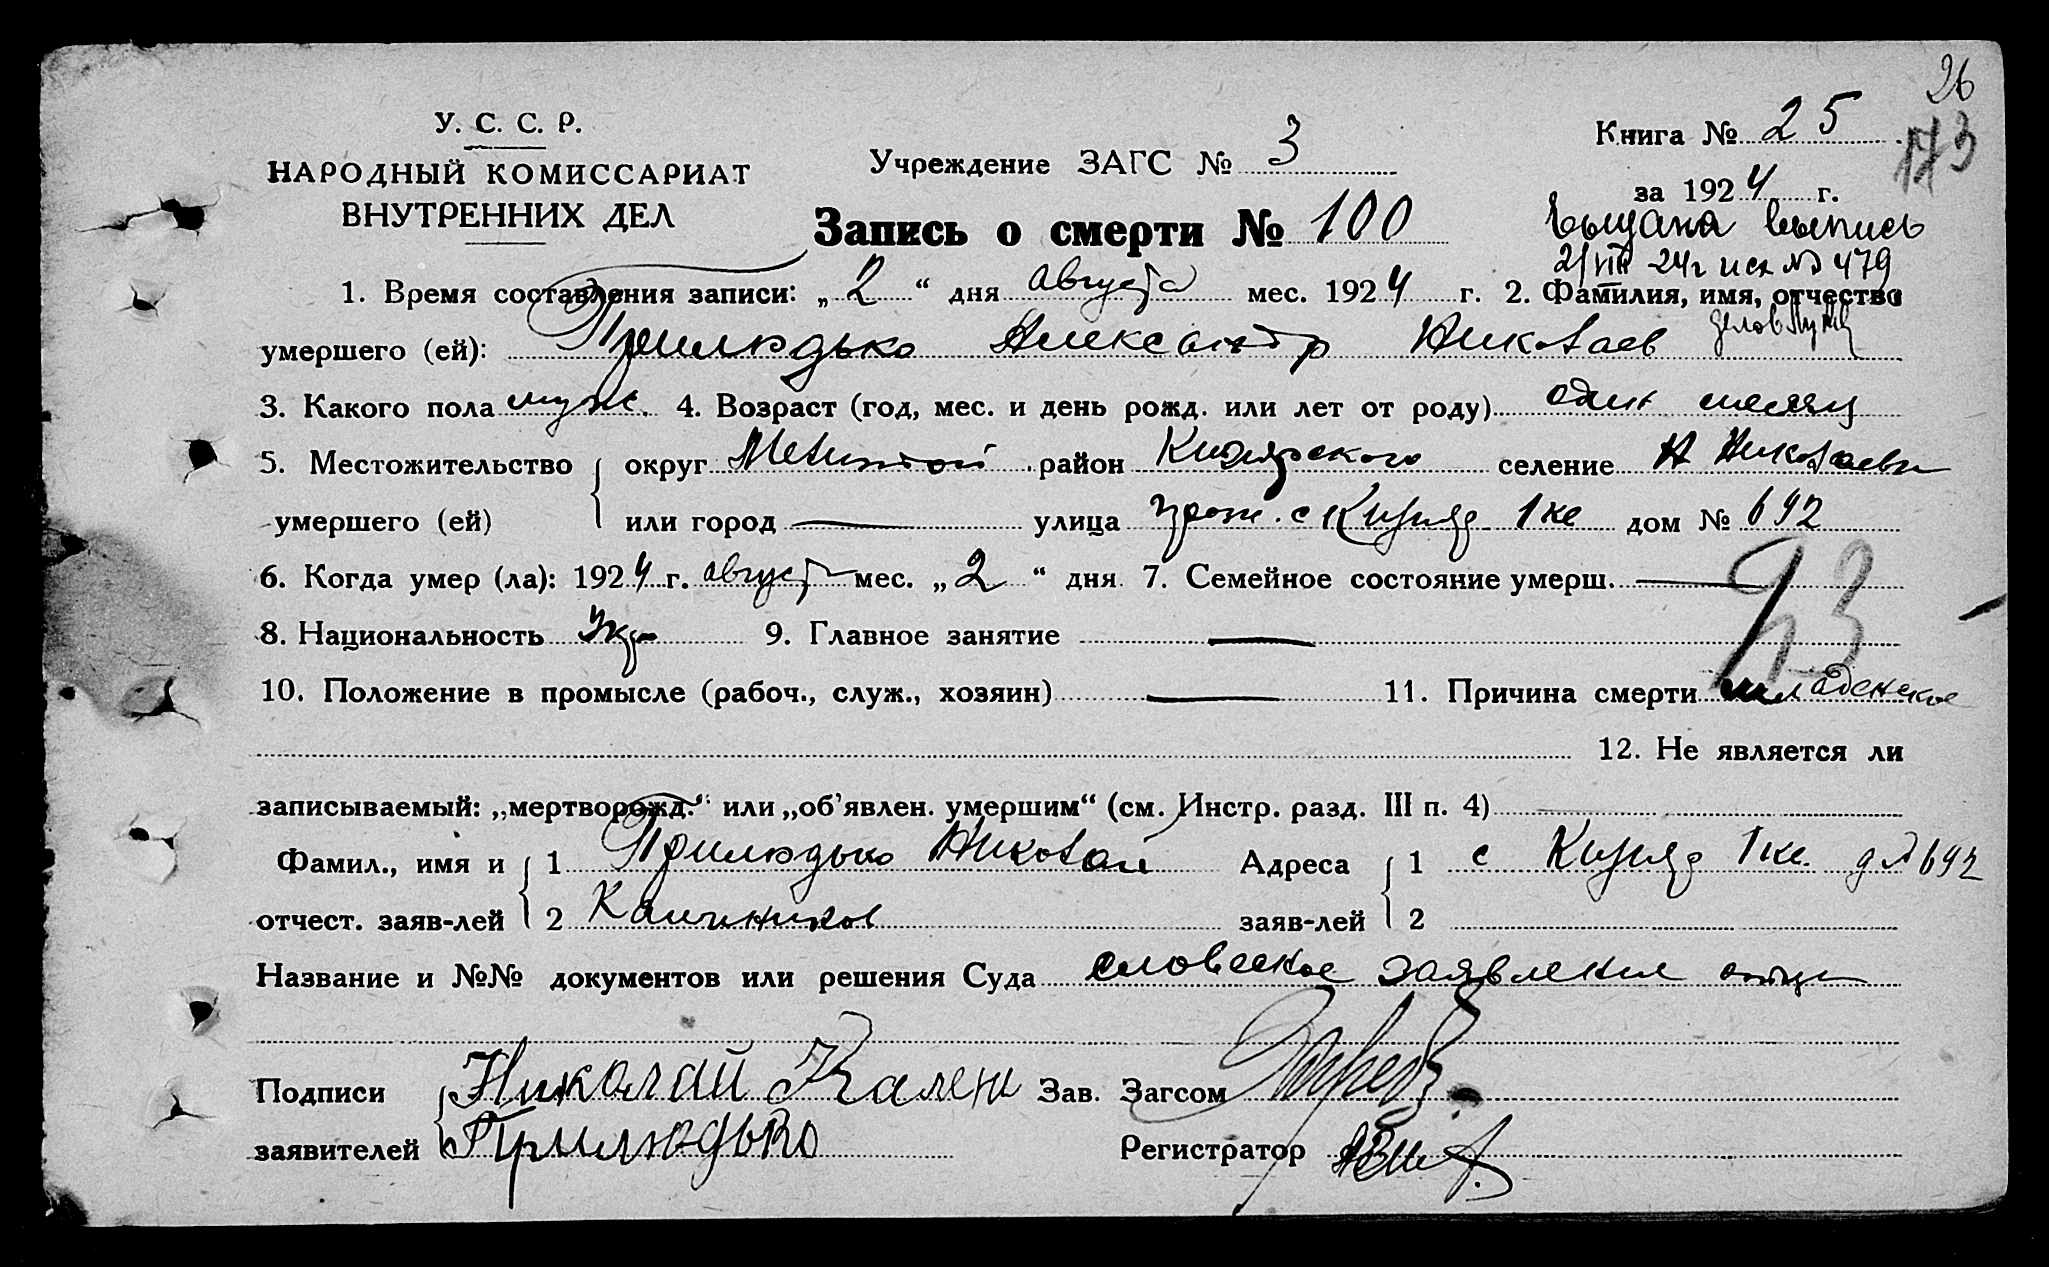 26
173
У. С. С. Р.
НАРОДНЫЙ КОМИССАРИАТ
ВНУТРЕННИХ ДЕЛ
Учреждение ЗАГС № 3
Книга № 25
за 1924 г.
Запись о смерти № 100
Выдана выпись
21/VIII 24г исх № 479
1. Время составления записи: „2“ дня августа мес. 1924 г. 2. Фамилия, имя, отчество
умершего (ей): Прилюдько Александр Николаев
3. Какого пола муж. 4. Возраст (год, мес. и день рожд. или лет от роду) один месяц
5. Местожительство округ район селение Н Николаевка
умершего (ей) или город — улица с Кизияр 1 ке дом № 692
6. Когда умер (ла): 1924 г. август мес. „2“ дня 7. Семейное состояние умерш. —
8. Национальность Укр 9. Главное занятие —
23
10. Положение в промысле (рабоч., служ., хозяин) — 11. Причина смерти младенское
12. Не является ли
записываемый: „мертворожд.“ или „об'явлен. умершим“ (см. Инстр. разд. III п. 4)
Фамил., имя и 1 Прилюдько Николай Адреса 1 с Кизияр 1 ке. д № 692
отчест. заяв-лей 2 Калиников заяв-лей 2
Название и №№ документов или решения Суда словеское заявление отца
Подписи Николай Кален Зав. Загсом
заявителей Прилюдько Регистратор